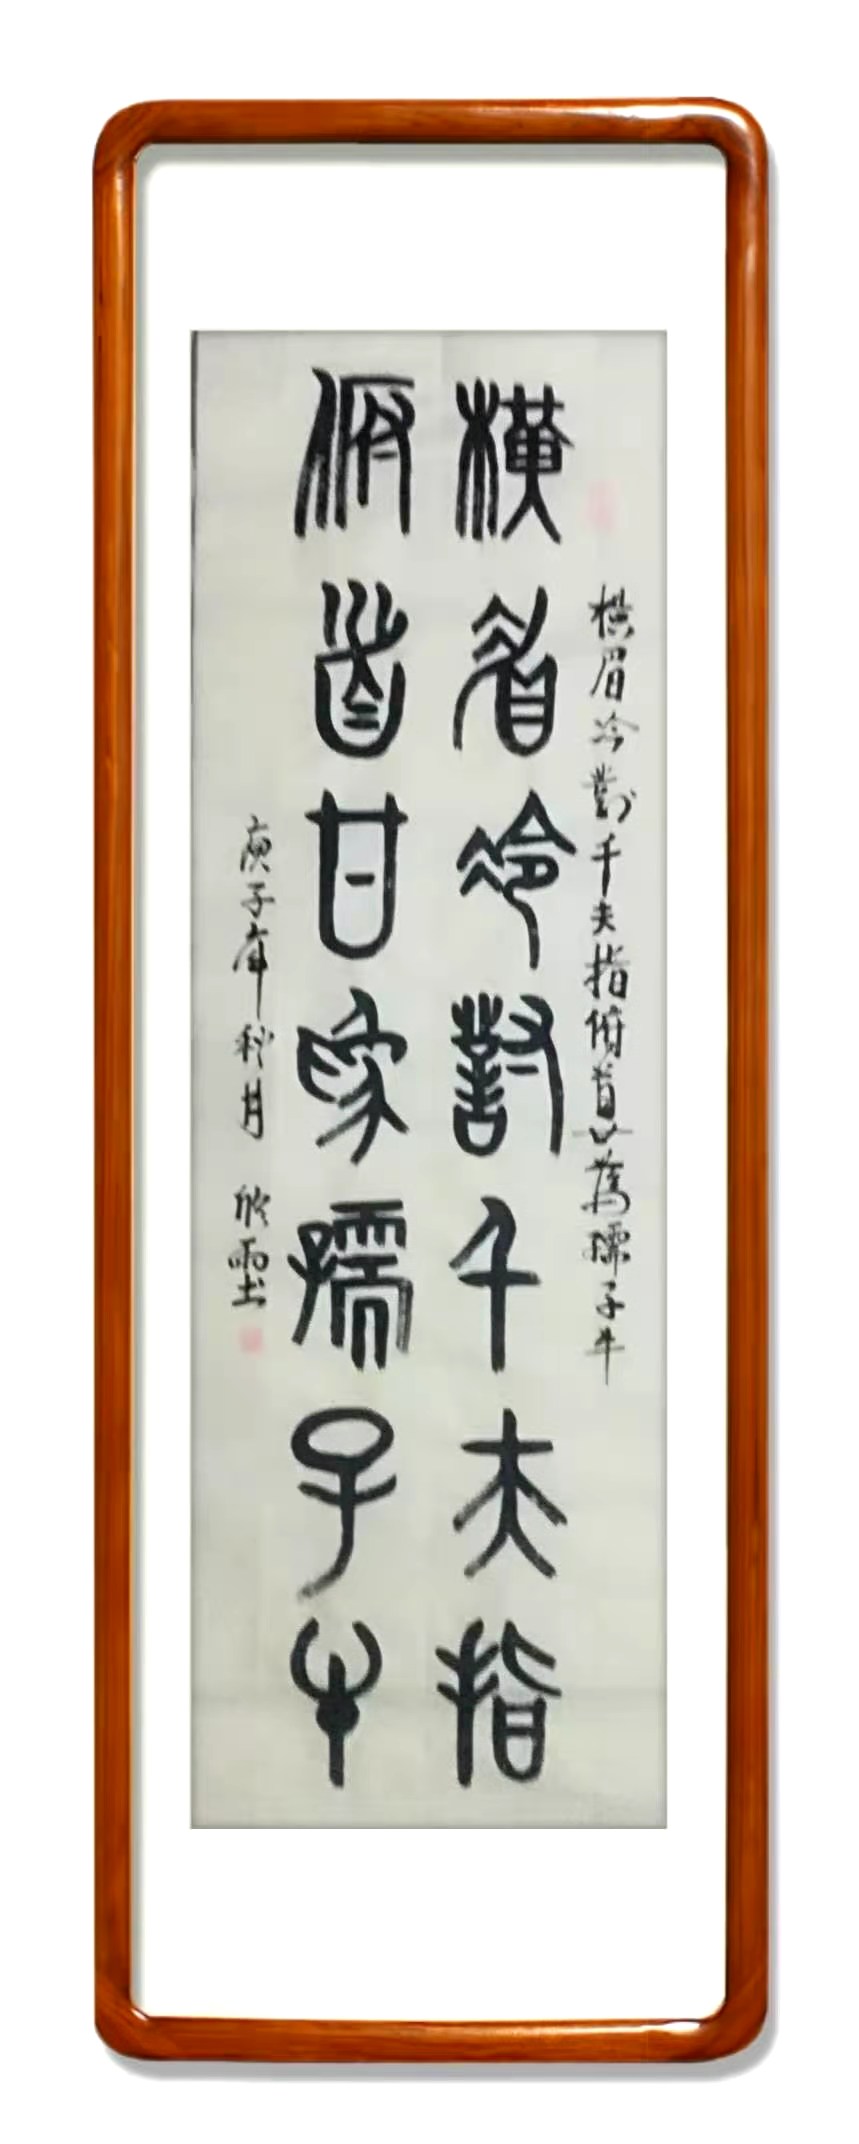 橫眉冷對千夫指俯首甘為孺子牛
橫眉冷對千夫指
俯首甘為孺子牛
庚子年秋月